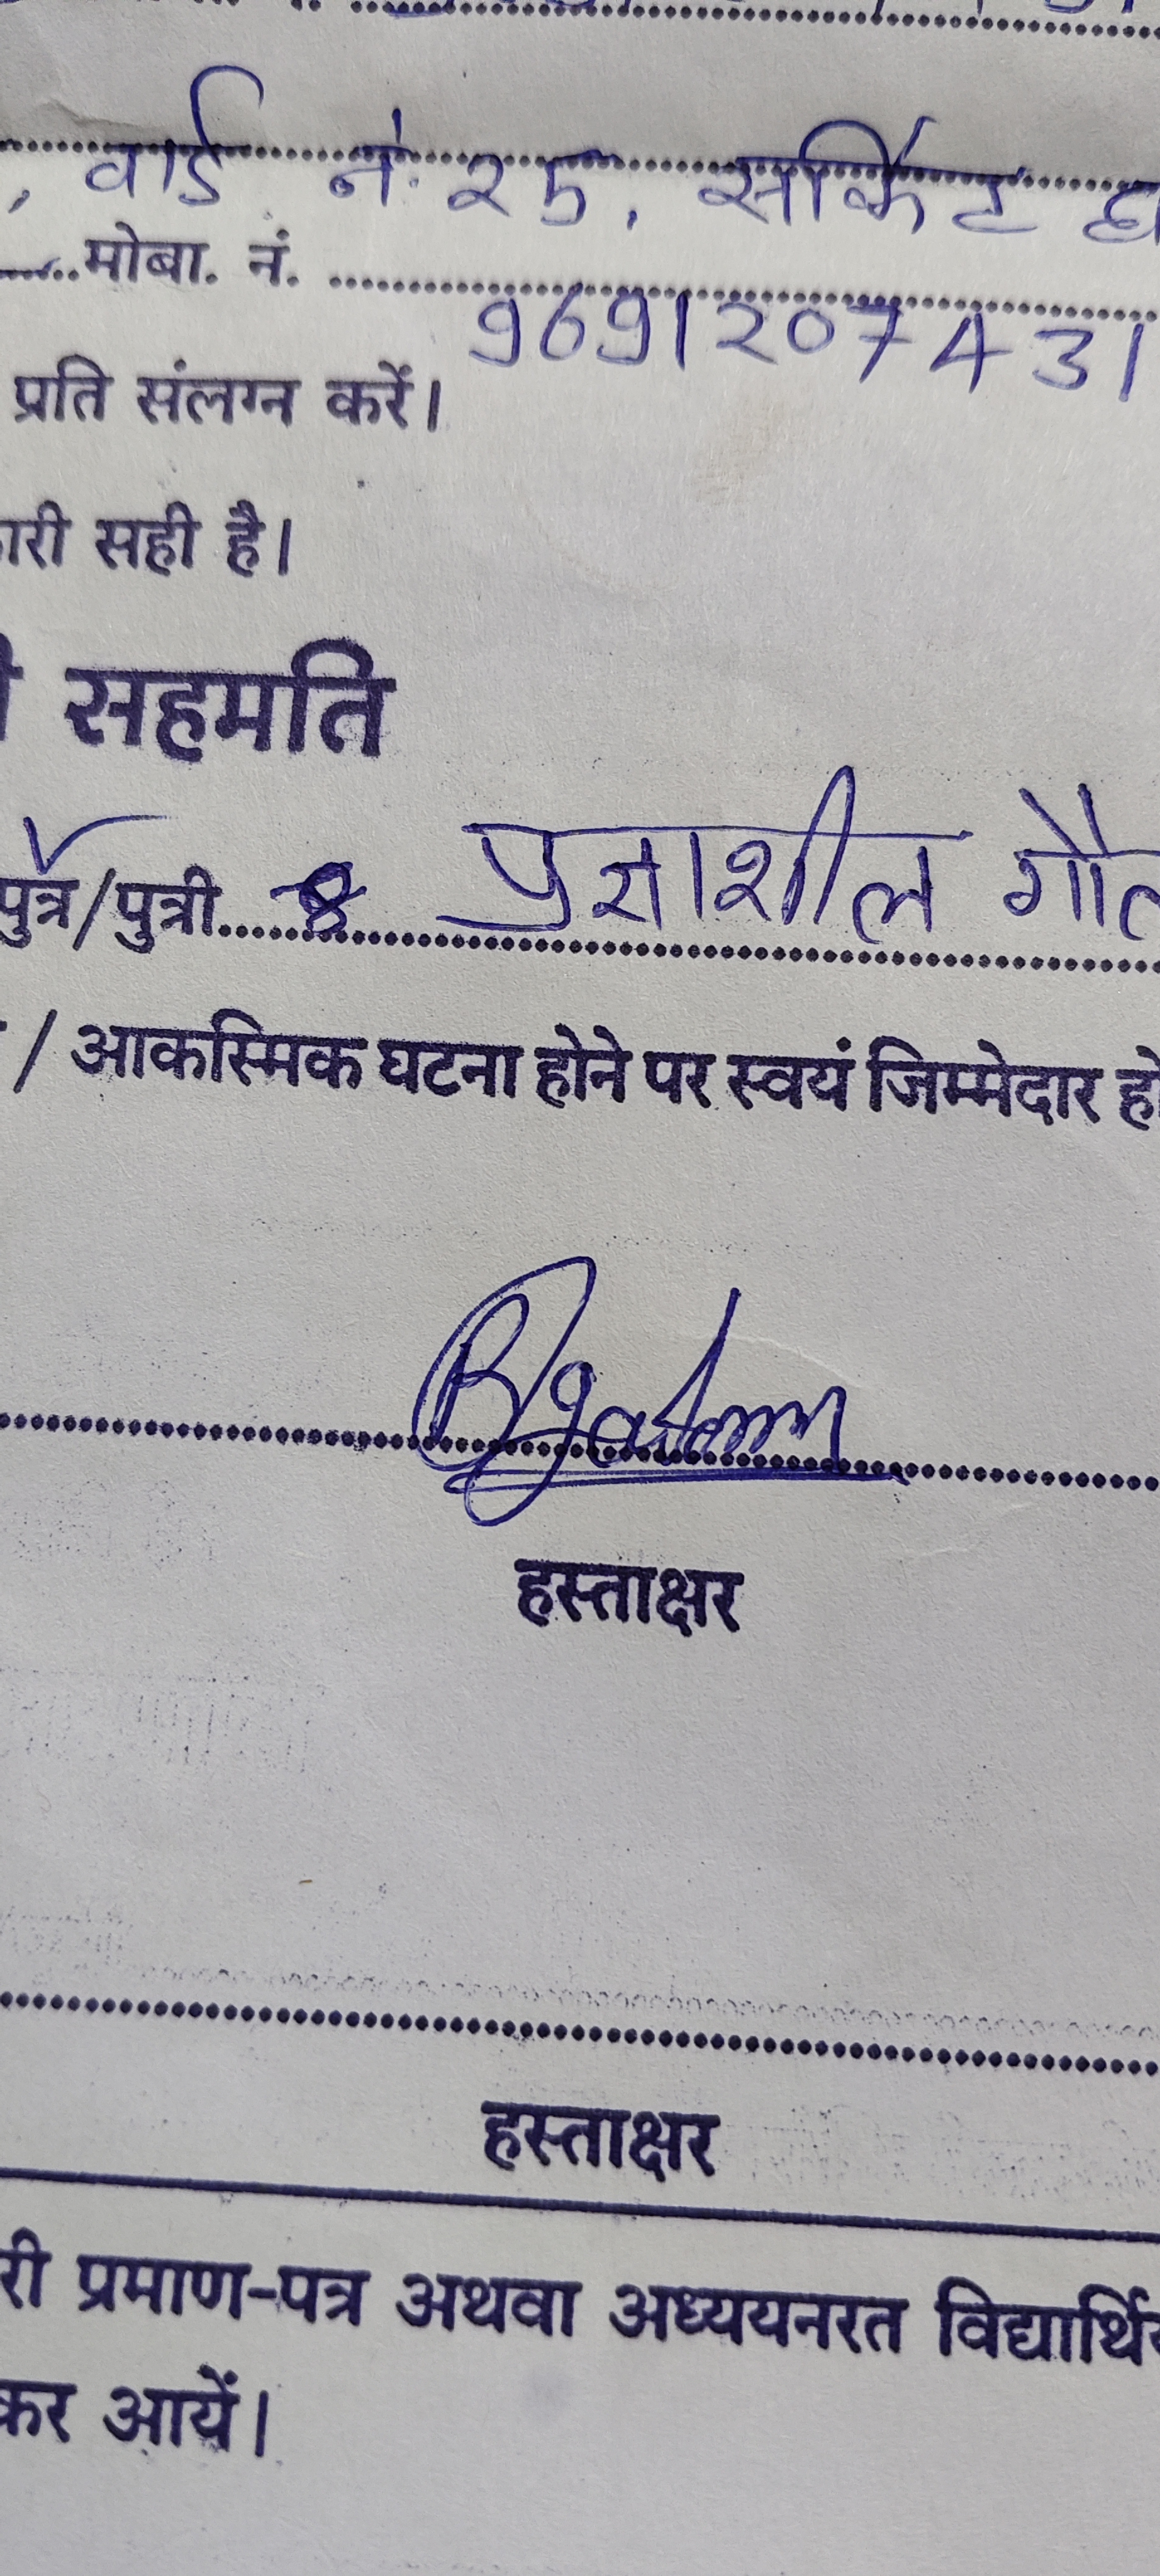 , वार्ड नं. २५, सर्किट
मोबा. नं. 9691207431
प्रति संलग्न करें।
सही है।
सहमति
पुत्र/पुत्री प्रज्ञाशील
/ आकस्मिक घटना होने पर स्वयं जिम्मेदार
हस्ताक्षर
हस्ताक्षर
प्रमाण-पत्र अथवा अध्ययनरत
कर आयें।